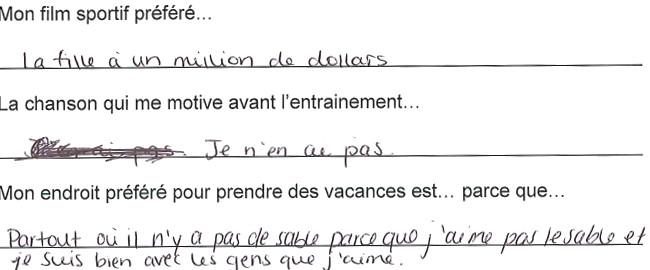 Mon film sportif préféré...
la fille à un million de dollars
La chanson qui me motive avant l'entrainement...
Je n'en ai pas.
Mon endroit préféré pour prendre des vacances est... parce que...
Partout où il n'y a pas de sable parce que j'aime pas le sable et
je suis bien avec les gens que j'aime.